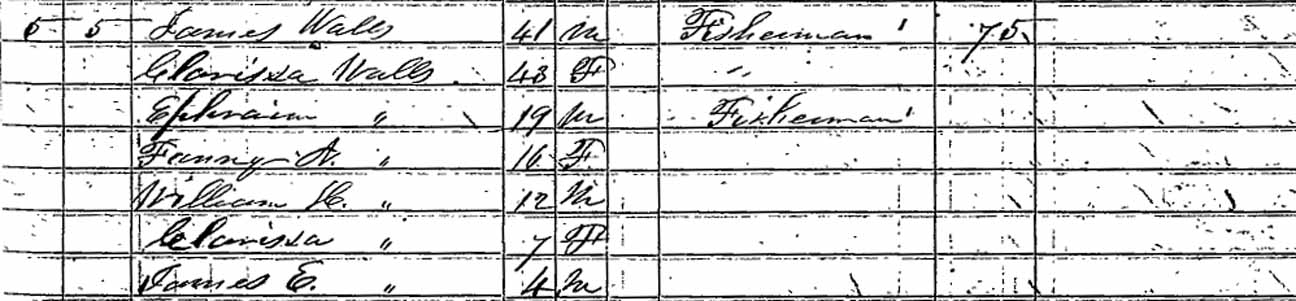 5 5 James Walls 41 M Fisherman 75
Clarissa Walls 43 F "
Ephraim " 19 M Fisherman
Fanny A. " 16 F
William H. " 12 M
Clarissa " 7 F
James E. " 4 M